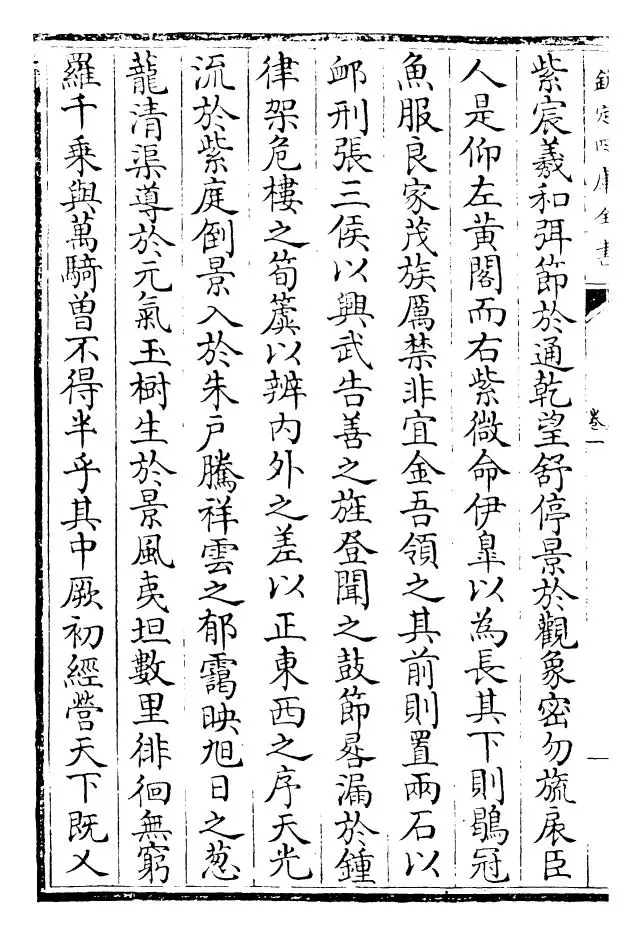 欽定四庫全書
卷一
一
紫宸羲和弭節於通乾望舒停景於觀象密勿旒扆臣
人是仰左黃閣而右紫微命伊臯以為長其下則鶡冠
魚服良家茂族厲禁非宜金吾領之其前則置兩石以
䘏刑張三侯以興武告善之旌登聞之鼓節晷漏於鍾
律架危樓之筍簴以辨內外之差以正東西之序天光
流於紫庭倒景入於朱戶騰祥雲之郁靄映旭日之葱
蘢清渠導於元氣玉樹生於景風夷坦數里徘徊無窮
羅千乗與萬騎曽不得半乎其中厥初經營天下既乂